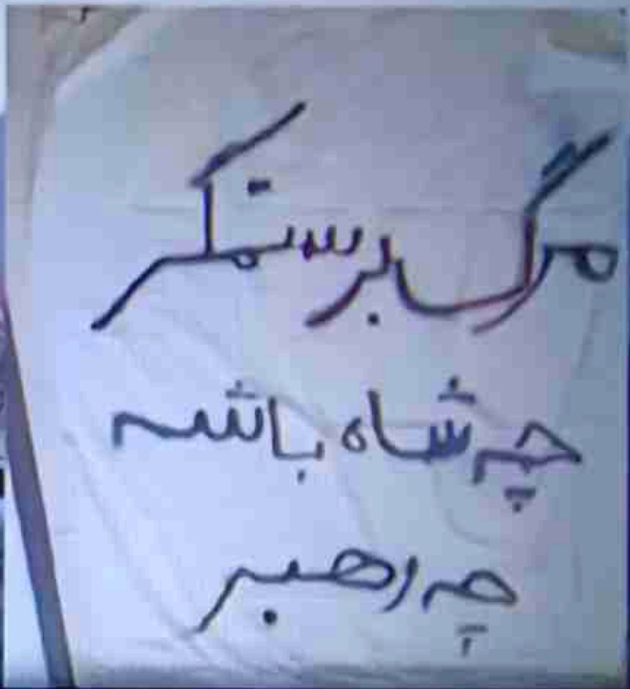 مرگ بر ستمگر
چه شاه باشه
چه رهبر